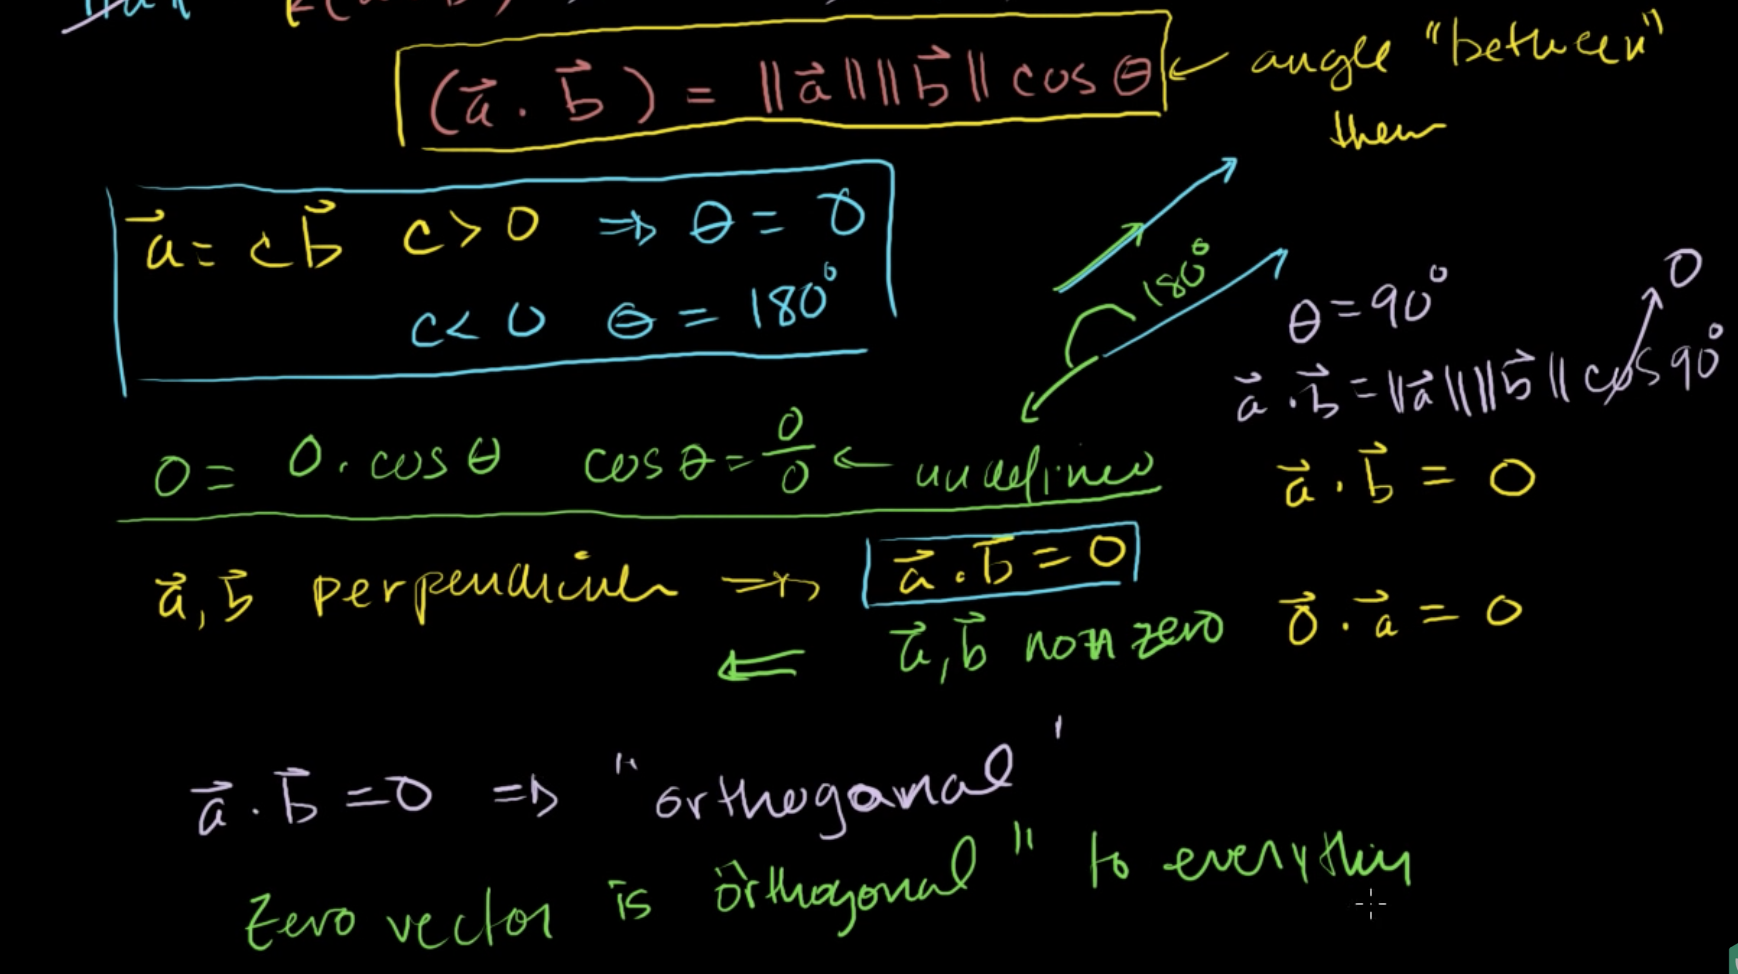 (a⃗ · b⃗) = ‖a⃗‖‖b⃗‖ cos θ ← angle "between"
them
a⃗ = cb⃗ c > 0 ⇒ θ = 0
c < 0 θ = 180°
180°
θ = 90°
0
a⃗ · b⃗ = ‖a⃗‖‖b⃗‖ cos 90°
0 = 0 · cos θ cos θ = 0/0 ← undefined
a⃗ · b⃗ = 0
a⃗, b⃗ perpendicular ⇒ a⃗ · b⃗ = 0
⇐ a⃗, b⃗ non zero
0⃗ · a⃗ = 0
a⃗ · b⃗ = 0 ⇒ "orthogonal"
Zero vector is "orthogonal" to everything